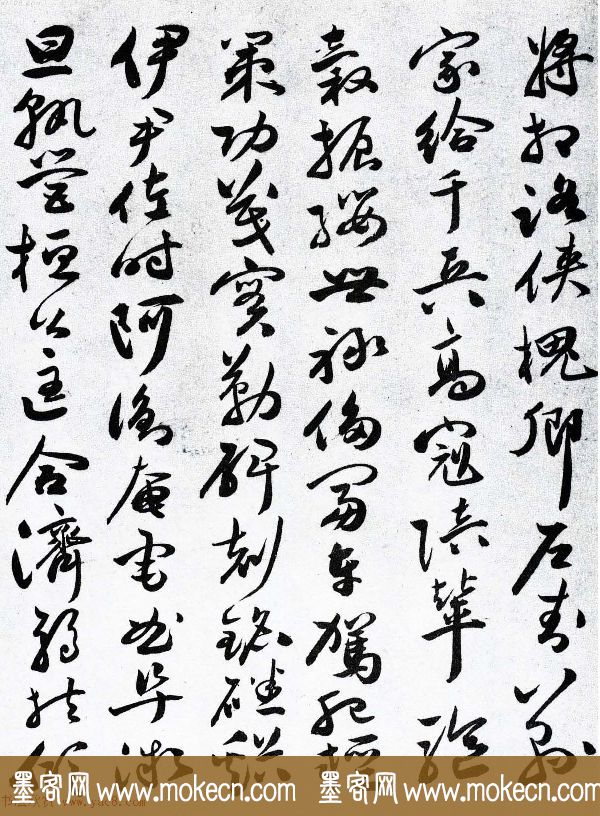 將相路俠槐卿戶封八縣
家給千兵高冠陪輦驅
轂振纓世祿侈富車駕肥輕
策功茂實勒碑刻銘磻溪
伊尹佐時阿衡奄宅曲阜微
旦孰營桓公匡合濟弱扶傾
墨客网 www.mokecn.com 墨客网 www.mokecn.com